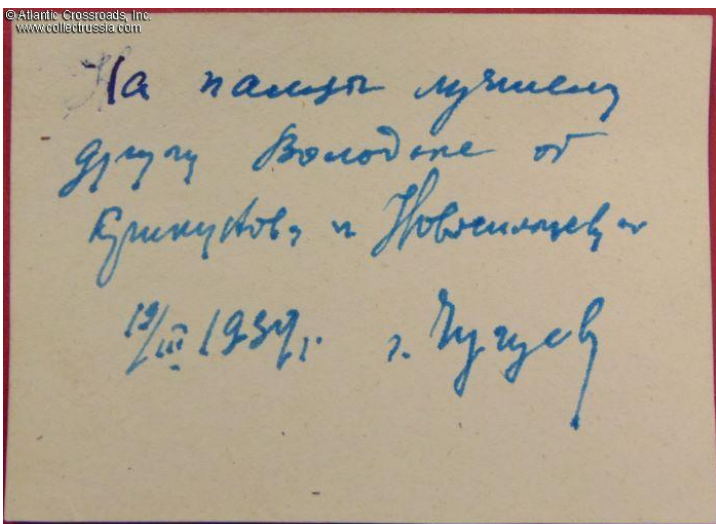 © Atlantic Crossroads, Inc.
www.collectrussia.com
На память лучшему
другу Володьке от
и Новосильцева
12/III 1939 г. г. Чугуев